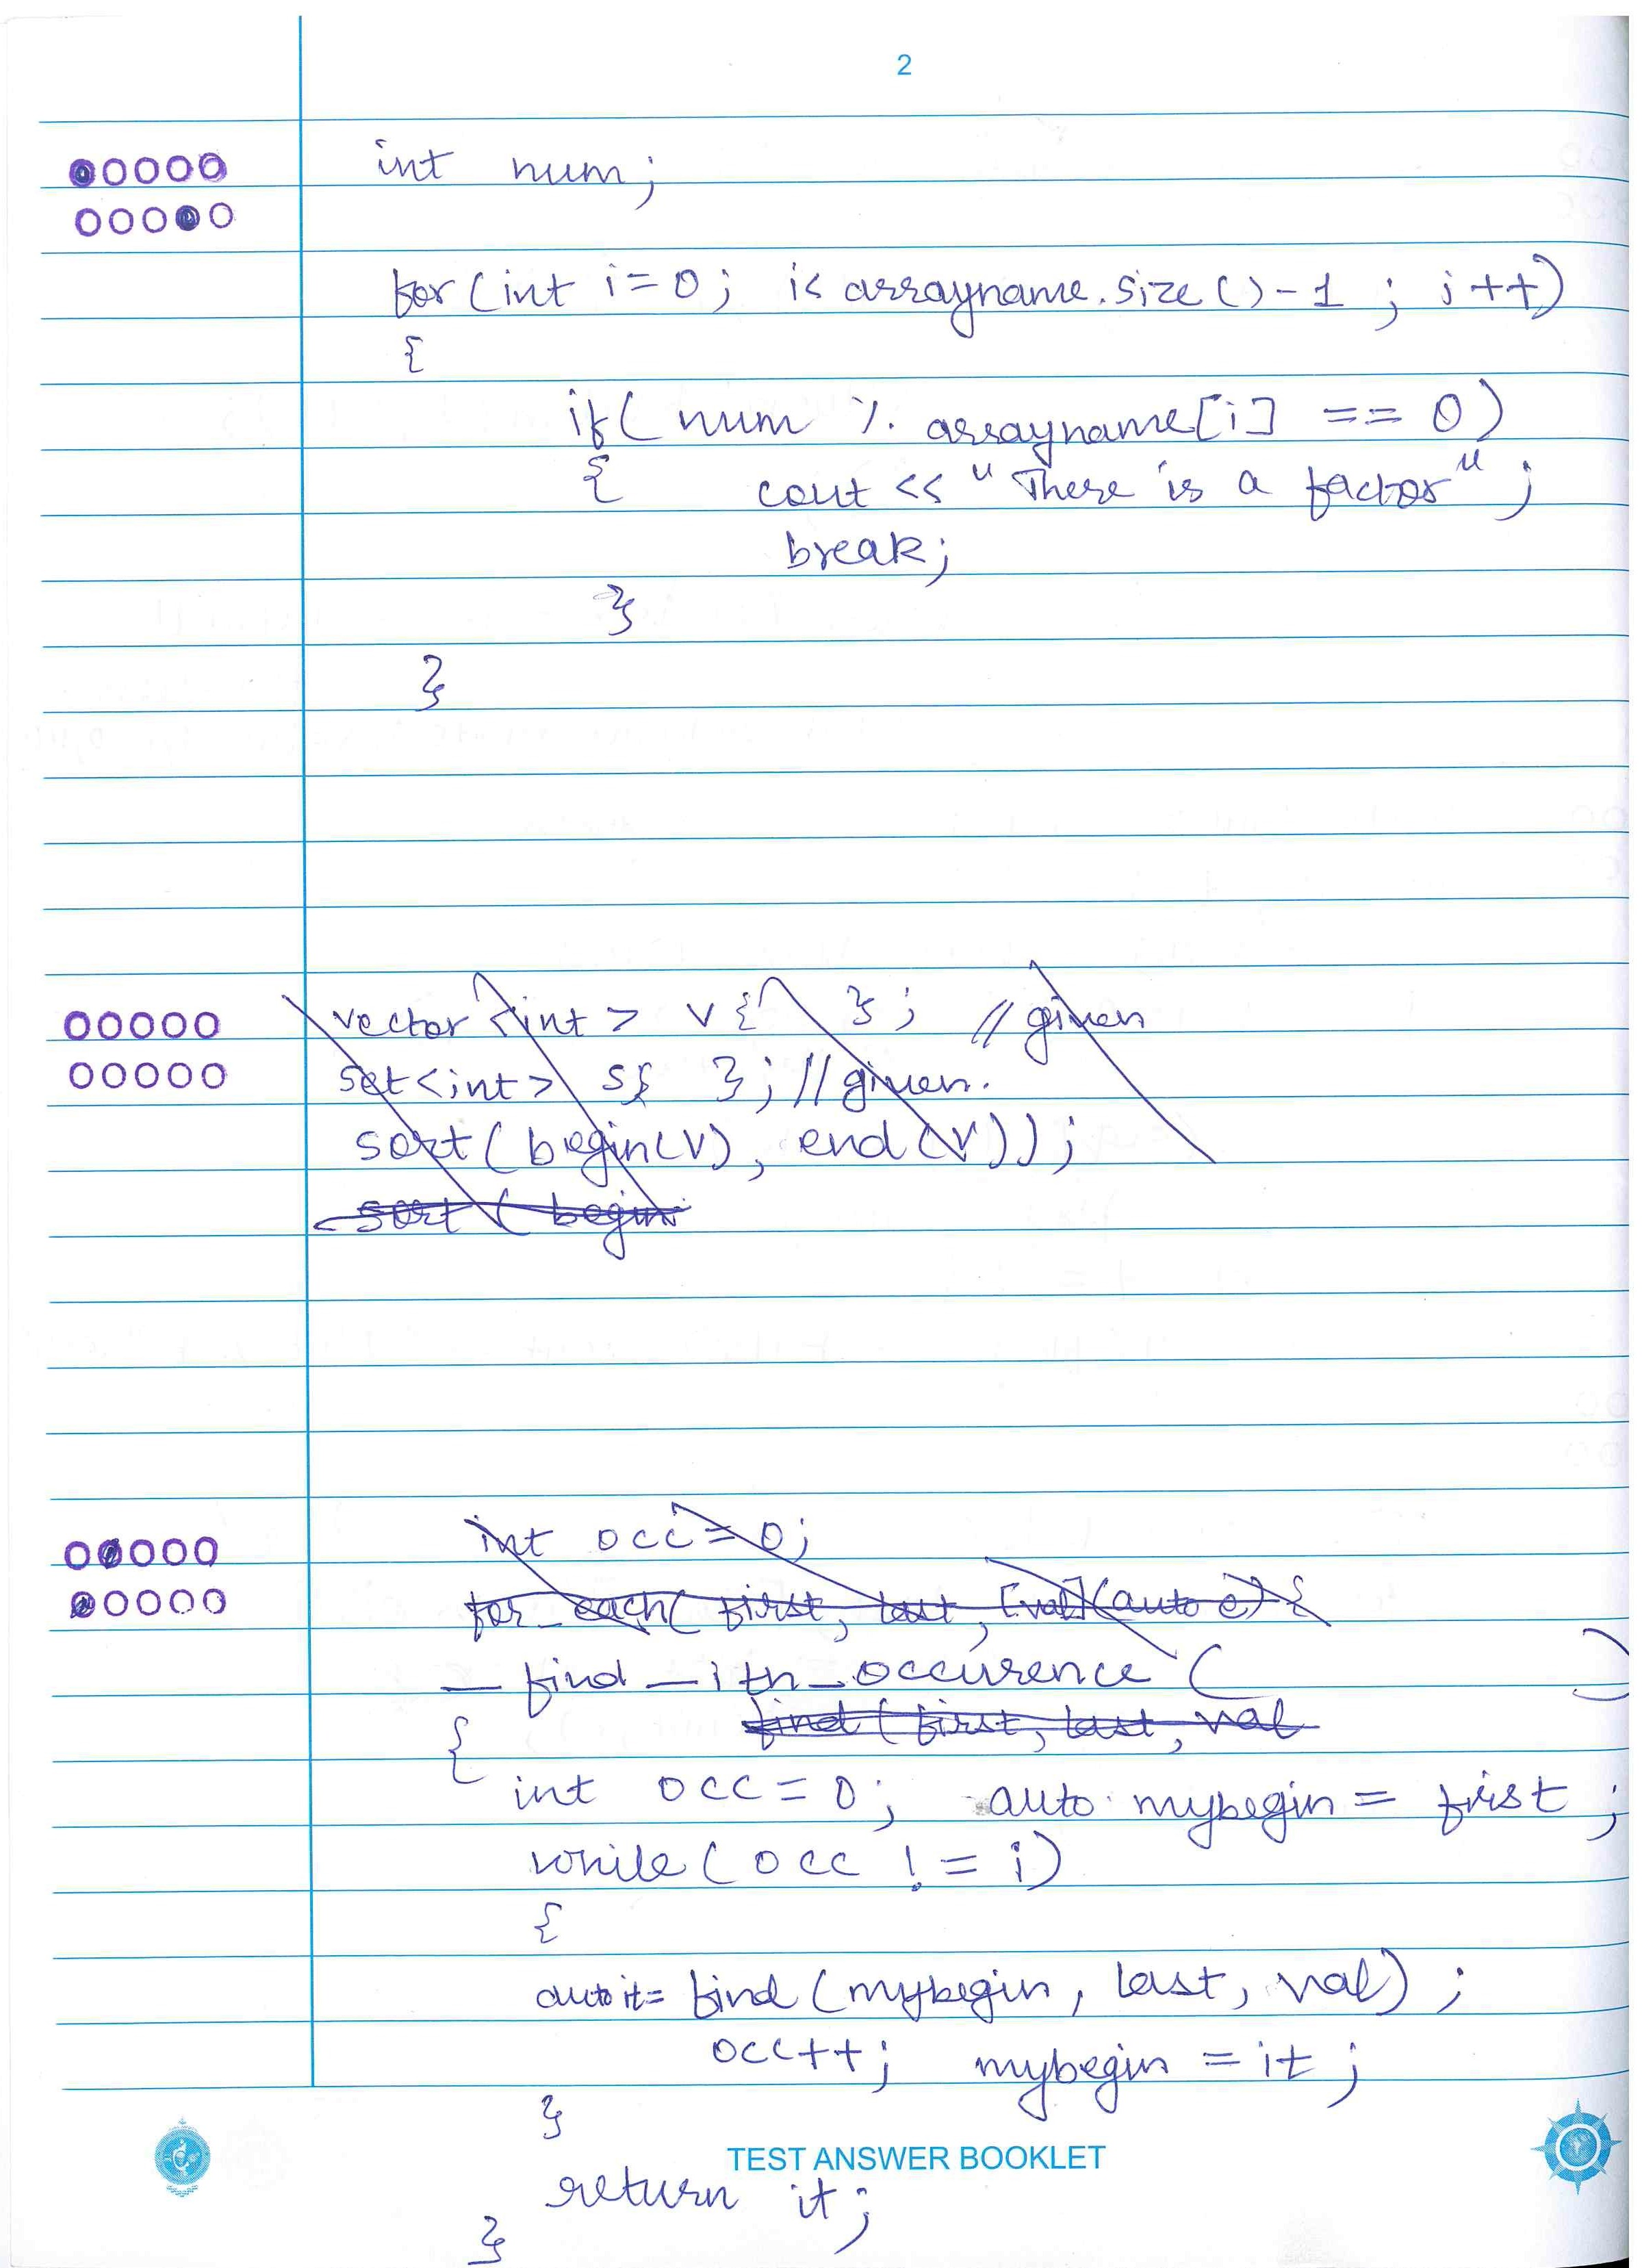 2
int num;
for(int i=0; i< arrayname.size()-1 ; i++)
{
if( num % arrayname[i] == 0)
{ cout << "There is a factor" ;
break;
}
}
vector <int> v{ }; //given
set<int> s{ }; //given.
sort( begin(v), end(v));
sort ( begin
int occ=0;
for_each( first, last, [val](auto e) {
— find_ith_occurence ( )
find( first, last, val
{
int occ=0; auto mybegin = first ;
while( occ != i)
{
auto it= find (mybegin, last, val) ;
occ++; mybegin = it ;
}
TEST ANSWER BOOKLET
return it;
}